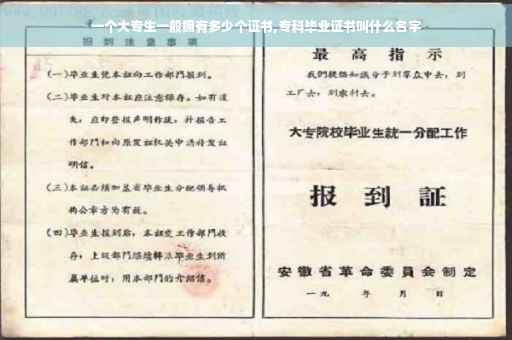 一个大专生一般拥有多少个证书,专科毕业证书叫什么名字
报到注意事项
(一)毕业生凭本证向工作部门报到。
(二)毕业生对本证应注意保存。如有遗
失,应即登报声明作废,并报告工
作部门和向原发证机关申请补发证
明信。
(三)本证必须加盖省毕业生分配领导机
构公章方为有效。
(四)毕业生报到后,本证交工作部门收
存;上级部门继续转派毕业生到所
属单位时,用本部门的介绍信。
最高指示
我们提倡知识分子到群众中去,到
工厂去,到农村去。
大专院校毕业生統一分配工作
报到証
安徽省革命委員会制定
一九 年 月 日